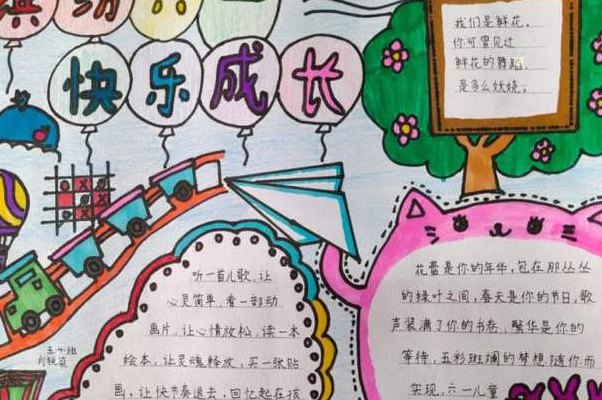 缤纷六一
快乐成长
我们是鲜花,
你可曾见过
鲜花的舞姿,
是多么妖娆。
听一首儿歌,让
心灵简单,看一部动
画片,让心情放松,读一本
绘本,让灵魂释放,买一张贴
画,让快节奏退去,回忆起在孩
花蕾是你的年华,包在那丛丛
的绿叶之间,春天是你的节日,歌
声装满了你的书卷,繁华是你的
等待,五彩斑斓的梦想随你而
实现,六一儿童